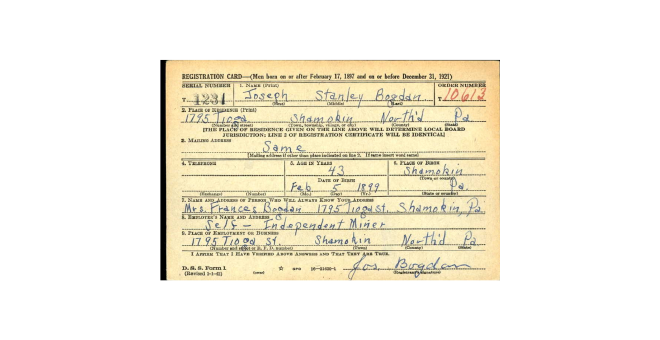 REGISTRATION CARD—(Men born on or after February 17, 1897 and on or before December 31, 1921)
SERIAL NUMBER 1. NAME (Print) ORDER NUMBER
T 1231 Joseph Stanley Bogdan T 10613
(First) (Middle) (Last)
2. PLACE OF RESIDENCE (Print)
1795 Tioga Shamokin North'd Pa.
(Number and street) (Town, township, village, or city) (County) (State)
[THE PLACE OF RESIDENCE GIVEN ON THE LINE ABOVE WILL DETERMINE LOCAL BOARD
JURISDICTION; LINE 2 OF REGISTRATION CERTIFICATE WILL BE IDENTICAL]
3. MAILING ADDRESS
Same
[Mailing address if other than place indicated on line 2. If same insert word same]
4. TELEPHONE 5. AGE IN YEARS 6. PLACE OF BIRTH
43 Shamokin
DATE OF BIRTH (Town or county)
Feb. 5 1899 Pa.
(Exchange) (Number) (Mo.) (Day) (Yr.) (State or country)
7. NAME AND ADDRESS OF PERSON WHO WILL ALWAYS KNOW YOUR ADDRESS
Mrs. Frances Bogdan 1795 Tioga st. Shamokin, Pa.
8. EMPLOYER'S NAME AND ADDRESS
Self - Independent Miner
9. PLACE OF EMPLOYMENT OR BUSINESS
1795 Tioga St. Shamokin North'd Pa.
(Number and street or R. F. D. number) (Town) (County) (State)
I AFFIRM THAT I HAVE VERIFIED ABOVE ANSWERS AND THAT THEY ARE TRUE.
D. S. S. Form 1 Jos. Bogdan
(Revised 1-1-42) (over) (Registrant's signature)